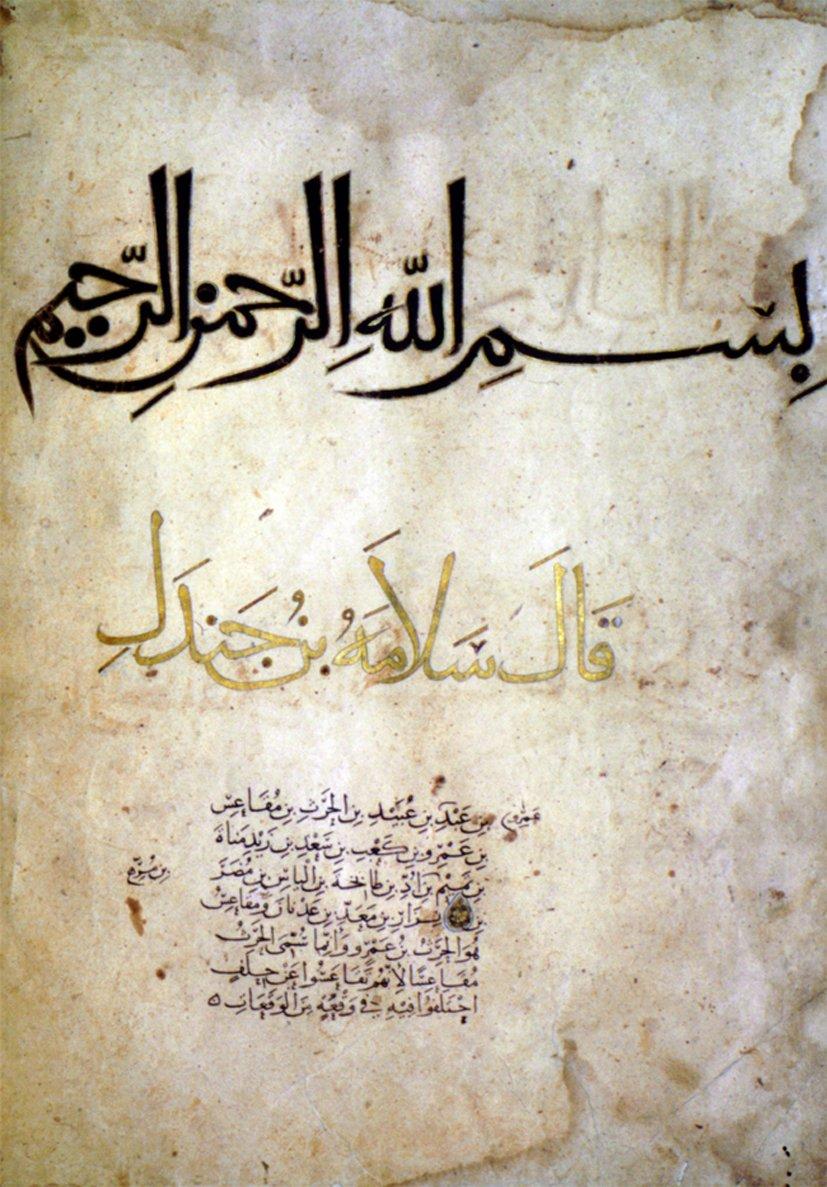 بِسْمِ اللهِ الرَّحمنِ الرَّحِيمِ
قَالَ سَلَامَهُ بْنُ جَندَلِ
بنِ عَبْدِ بنِ عُبَيْدِ بنِ الحَرْثِ بنِ مُقَاعِسِ
بنِ عَمْرِو بنِ كَعْبِ بنِ سَعْدِ بنِ زَيْدِ مَناةَ
بنِ تَمِيْمِ بنِ أُدِّ بنِ طَابِخَةَ بنِ اليَاسِ بنِ مُضَرَ
بنِ نِزَارِ بنِ مَعَدِّ بنِ عَدْنَانَ وَمُقَاعِسُ
هُوَ الحَرْثُ بْنُ عَمْرٍو وَإنّما سُمّىَ الحَرْثُ
مُقَاعِسًا لأنَّهُم تَقَاعَسُوا عَنْ حِلفٍ
اختَلَفُوا فِيْهِ في وَقْعَةٍ مِنَ الوَقَعَاتِ